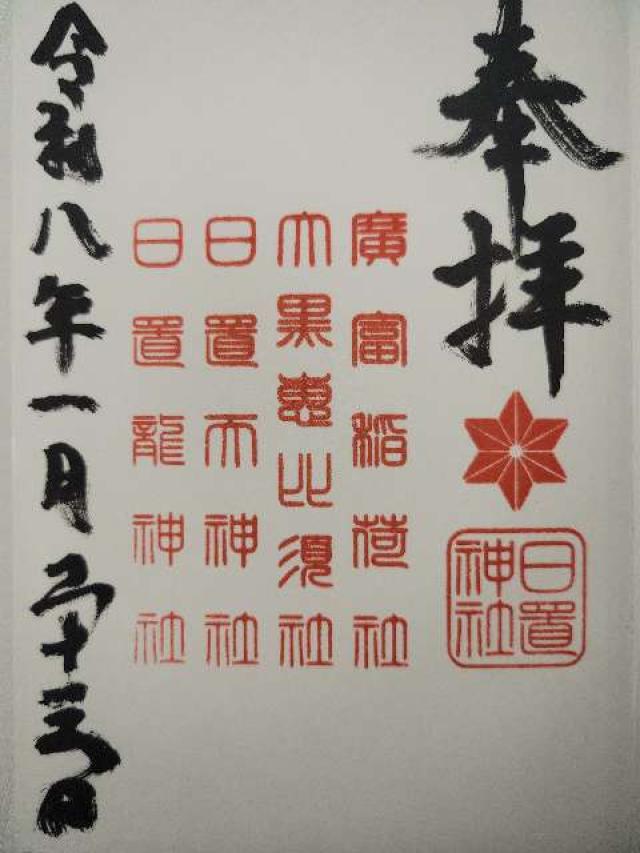 奉拝
日置神社
廣富稲荷社
大黒恵比須社
日置天神社
日置龍神社
令和八年一月二十三日